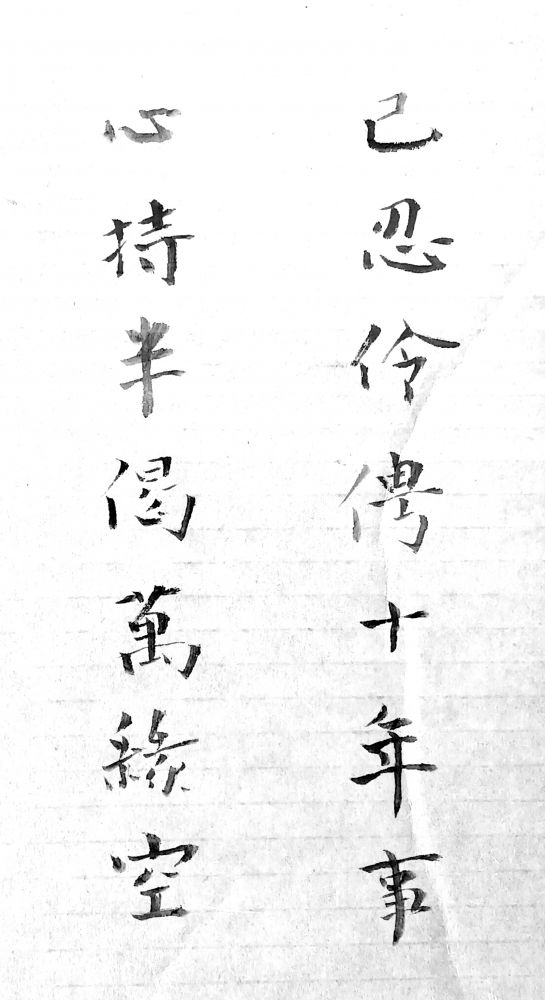 已忍伶俜十年事
心持半偈萬緣空